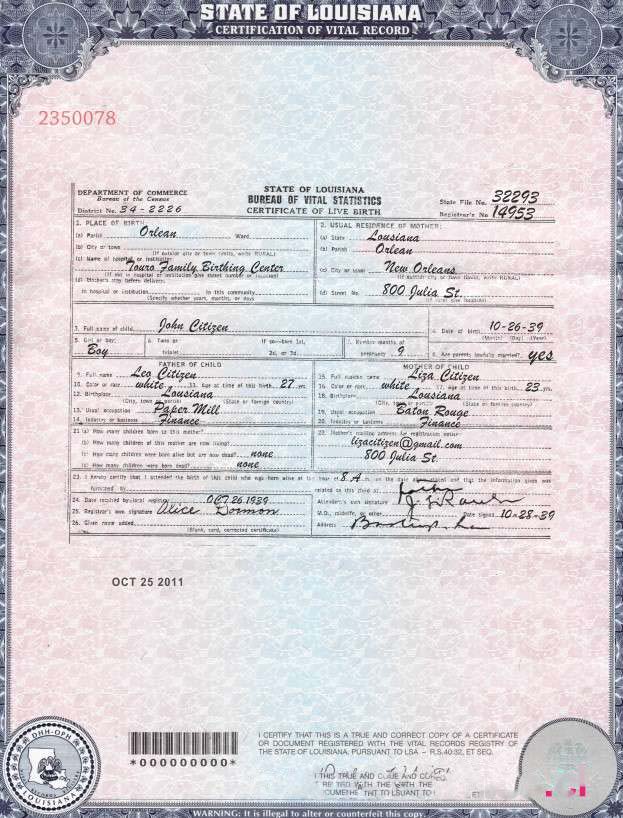 STATE OF LOUISIANA
CERTIFICATION OF VITAL RECORD
2350078
DEPARTMENT OF COMMERCE
Bureau of the Census
District No. 34-2226
STATE OF LOUISIANA
BUREAU OF VITAL STATISTICS
CERTIFICATE OF LIVE BIRTH
State File No. 32293
Registrar's No 14953
1. PLACE OF BIRTH
(a) Parish Orlean Ward
(b) City or town
(If outside city or town limits, write RURAL)
(c) Name of hospital or institution
Touro Family Birthing Center
(d) Mother's stay before delivery:
In hospital or institution In this community
(Specify whether years, months, or days
2. USUAL RESIDENCE OF MOTHER:
(a) State Lousiana
(b) Parish Orlean
(c) City or town New Orleans
(d) Street No. 800 Julia St.
3. Full name of child John Citizen
4. Date of birth 10-26-39
(Month) (Day) (Year)
5. Girl or boy: Boy
6. Twin or triplet
If so—born 1st, 2d, or 3d.
7. Number months of pregnancy 9
8. Are parents lawfully married? yes
FATHER OF CHILD
9. Full name Leo Citizen
10. Color or race white 11. Age at time of this birth 27 yr.
12. Birthplace Lousiana
(City, town or parish) (State or foreign country)
13. Usual occupation Paper Mill
14. Industry or business Finance
MOTHER OF CHILD
15. Full name Liza Citizen
16. Color or race white 17. Age at time of this birth 23 yrs.
18. Birthplace Lousiana
(City, town or parish) (State or foreign country)
19. Usual occupation Baton Rouge
20. Industry or business Finance
21 (a) How many children born to this mother?
(b) How many children of this mother are now living?
(c) How many children were born alive but are now dead? none
(d) How many children were born dead? none
22. Mother's mailing address for registration notice:
lizacitizen@gmail.com
800 Julia St.
23. I hereby certify that I attended the birth of this child who was born alive at the hour of 8 A m. on the date above stated and that the information given was
furnished by related to this child as
24. Date received by local registrar OCT 26 1939
Attendant's own signature
25. Registrar's own signature Alice
M.D., midwife, or other Date signed 10-28-39
26. Given name added
Address
OCT 25 2011
DHH-OPH
LOUISIANA
*000000000*
I CERTIFY THAT THIS IS A TRUE AND CORRECT COPY OF A CERTIFICATE
OR DOCUMENT REGISTERED WITH THE VITAL RECORDS REGISTRY OF
THE STATE OF LOUISIANA, PURSUANT TO LSA – R.S.40:32, ET SEQ.
THIS TRUE AND
WITH THE
ET
WARNING: It is illegal to alter or counterfeit this copy.